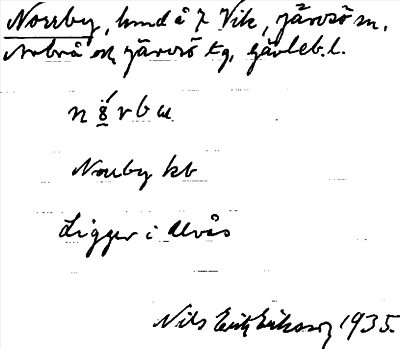 Norrby, hmd å 7 Vik, Järvsö sn,
Arbrå och Järvsö tg, Gävleb. l.
Norrby kb
Ligger i Alvås
Nils Erik Eriksson 1935.